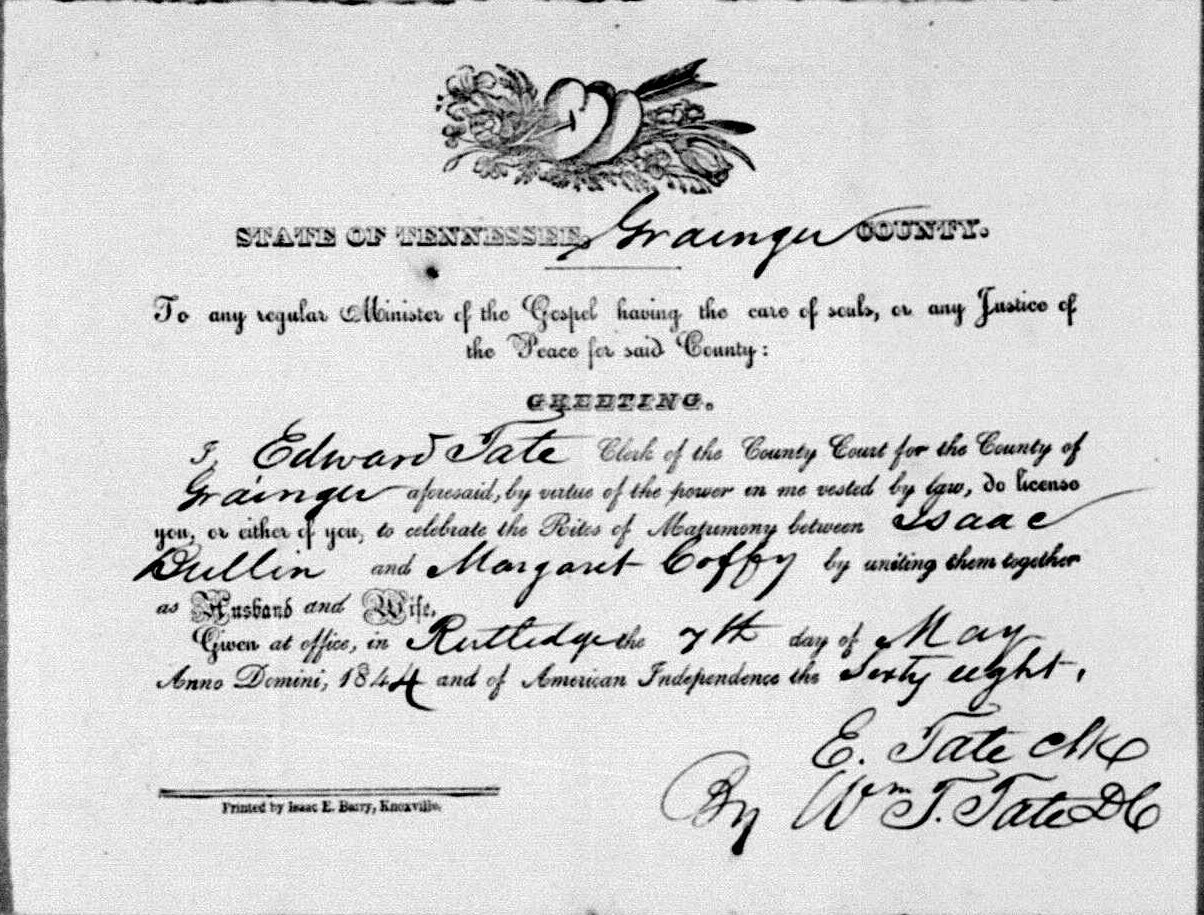 STATE OF TENNESSEE, Grainger COUNTY.
To any regular Minister of the Gospel having the care of souls, or any Justice of
the Peace for said County:
GREETING.
I, Edward Tate Clerk of the County Court for the County of
Grainger aforesaid, by virtue of the power in me vested by law, do license
you, or either of you, to celebrate the Rites of Matrimony between Isaac
Bullin and Margaret Coffy by uniting them together
as Husband and Wife.
Given at office, in Rutledge the 7th day of May
Anno Domini, 1844 and of American Independence the Sixty eight.
E. Tate Clk
By Wm T. Tate DC
Printed by Isaac E. Barry, Knoxville.